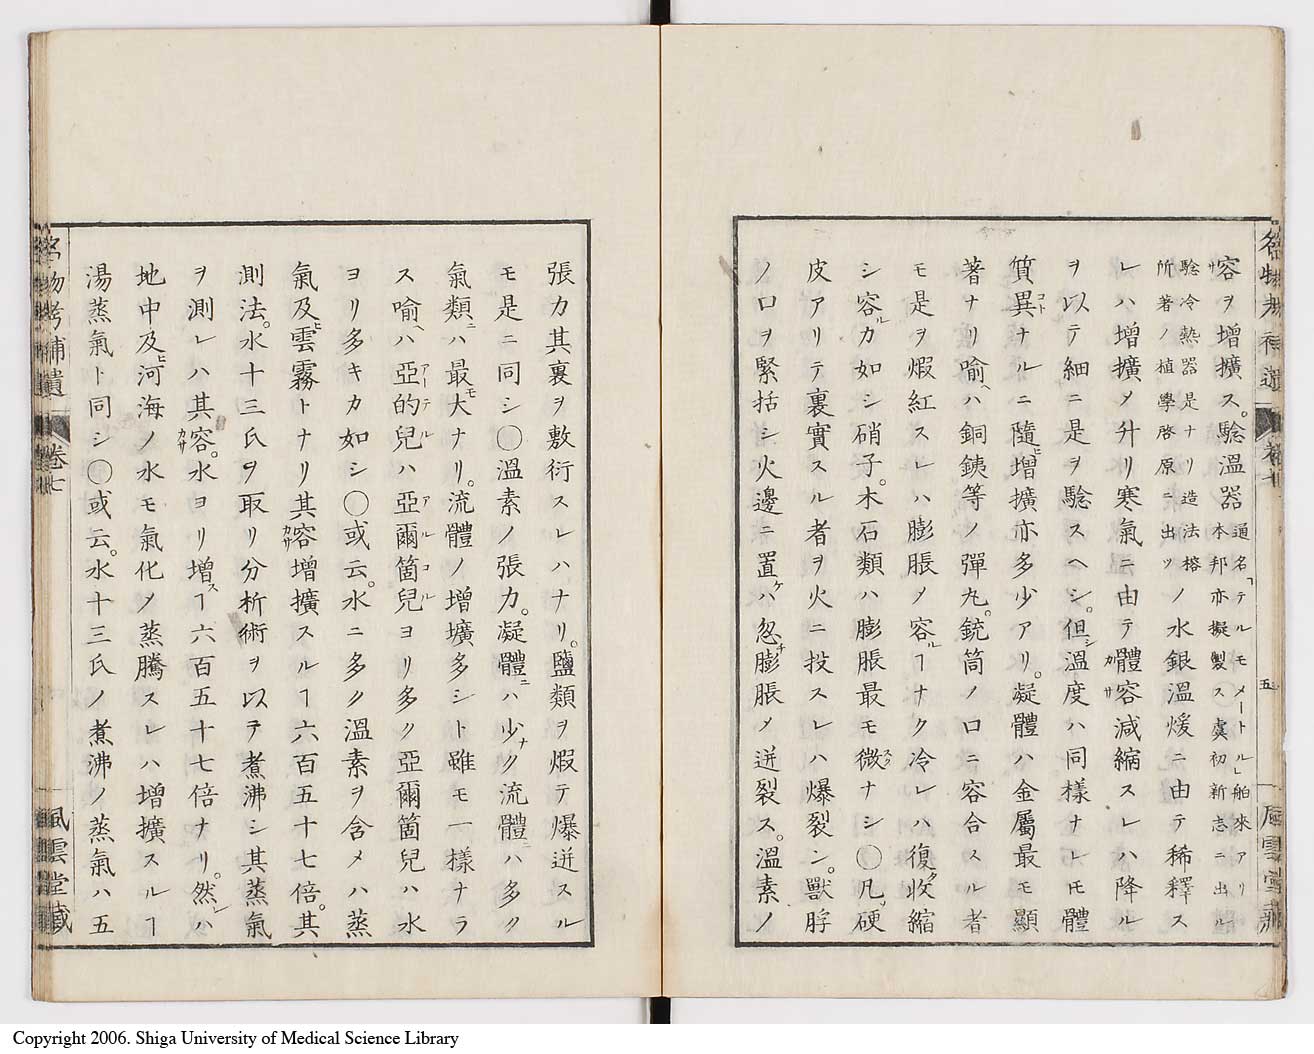 容ヲ增擴ス。驗溫器通名「テルモメートル」舶來アリ本邦亦擬製ス○虞初新志ニ出ル
驗冷熱器是ナリ造法榕所著ノ植學啓原ニ出ツノ水銀溫煖ニ由テ稀釋ス
レハ增擴メ升リ寒氣ニ由テ體容減縮スレハ降ル
ヲ以テ細ニ是ヲ驗スヘシ。但溫度ハ同樣ナレ𪜈體
質異ナルニ隨增擴亦多少アリ。凝體ハ金屬最モ顯
著ナリ喻ハ銅銕等ノ彈丸。銃筒ノ口ニ容合スル者
モ是ヲ煆紅スレハ膨脹メ容ルヿナク冷レハ復收縮
シ容ルカ如シ硝子。木石類ハ膨脹最モ微ナシ○凡硬
皮アリテ裏實スル者ヲ火ニ投スレハ爆裂ン。獸脬
ノ口ヲ緊括シ火邊ニ置ケハ忽膨脹メ迸裂ス。溫素ノ
名物考補遺 卷七 五 風雲堂藏
張力其裏ヲ敷衍スレハナリ。鹽類ヲ煆テ爆迸スル
モ是ニ同シ○溫素ノ張力。凝體ニハ少ナク流體ニハ多ク
氣類ニハ最モ大ナリ。流體ノ增壙多シト雖モ一樣ナラ
ス喻ハ亞的兒ハ亞爾箇兒ヨリ多ク亞爾箇兒ハ水
ヨリ多キカ如シ○或云。水ニ多ク溫素ヲ含メハ蒸
氣及雲霧トナリ其容增擴スルヿ六百五十七倍。其
測法。水十三氏ヲ取リ分析術ヲ以テ煮沸シ其蒸氣
ヲ測レハ其容。水ヨリ增スヿ六百五十七倍ナリ。然レハ
地中及河海ノ水モ氣化メ蒸騰スレハ增擴スルヿ
湯蒸氣ト同シ○或云。水十三氏ノ煮沸ノ蒸氣ハ五
名物考補遺 卷七 風雲堂藏
Copyright 2006. Shiga University of Medical Science Library